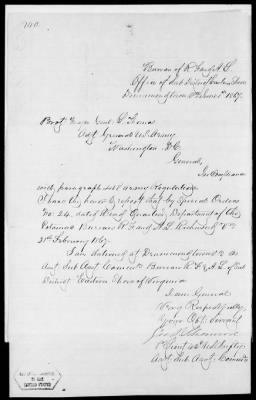 Bureau of R. F. and A. L.
Office of Sub District of Eastern Shore
Drummondtown
1867.
Brvt Major Genl L. Thomas
Adjt General U.S. Army
Washington D.C.
General,
In Compliance
with paragraph 468 Army Regulations
I have the honor to report that by Special Orders
No. 24, dated Head Quarters, Department of the
Potomac Bureau R. F. and A. L. Richmond Va
21st February 1867.
I am stationed at Drummondtown Va as
Asst. Sub Asst. Comr. Bureau R. F. & A. L. of Sub
District Eastern Shore of Virginia
I am General
Very Respectfully
Your Obt. Servant
Asst. Sub Asst. Comr.